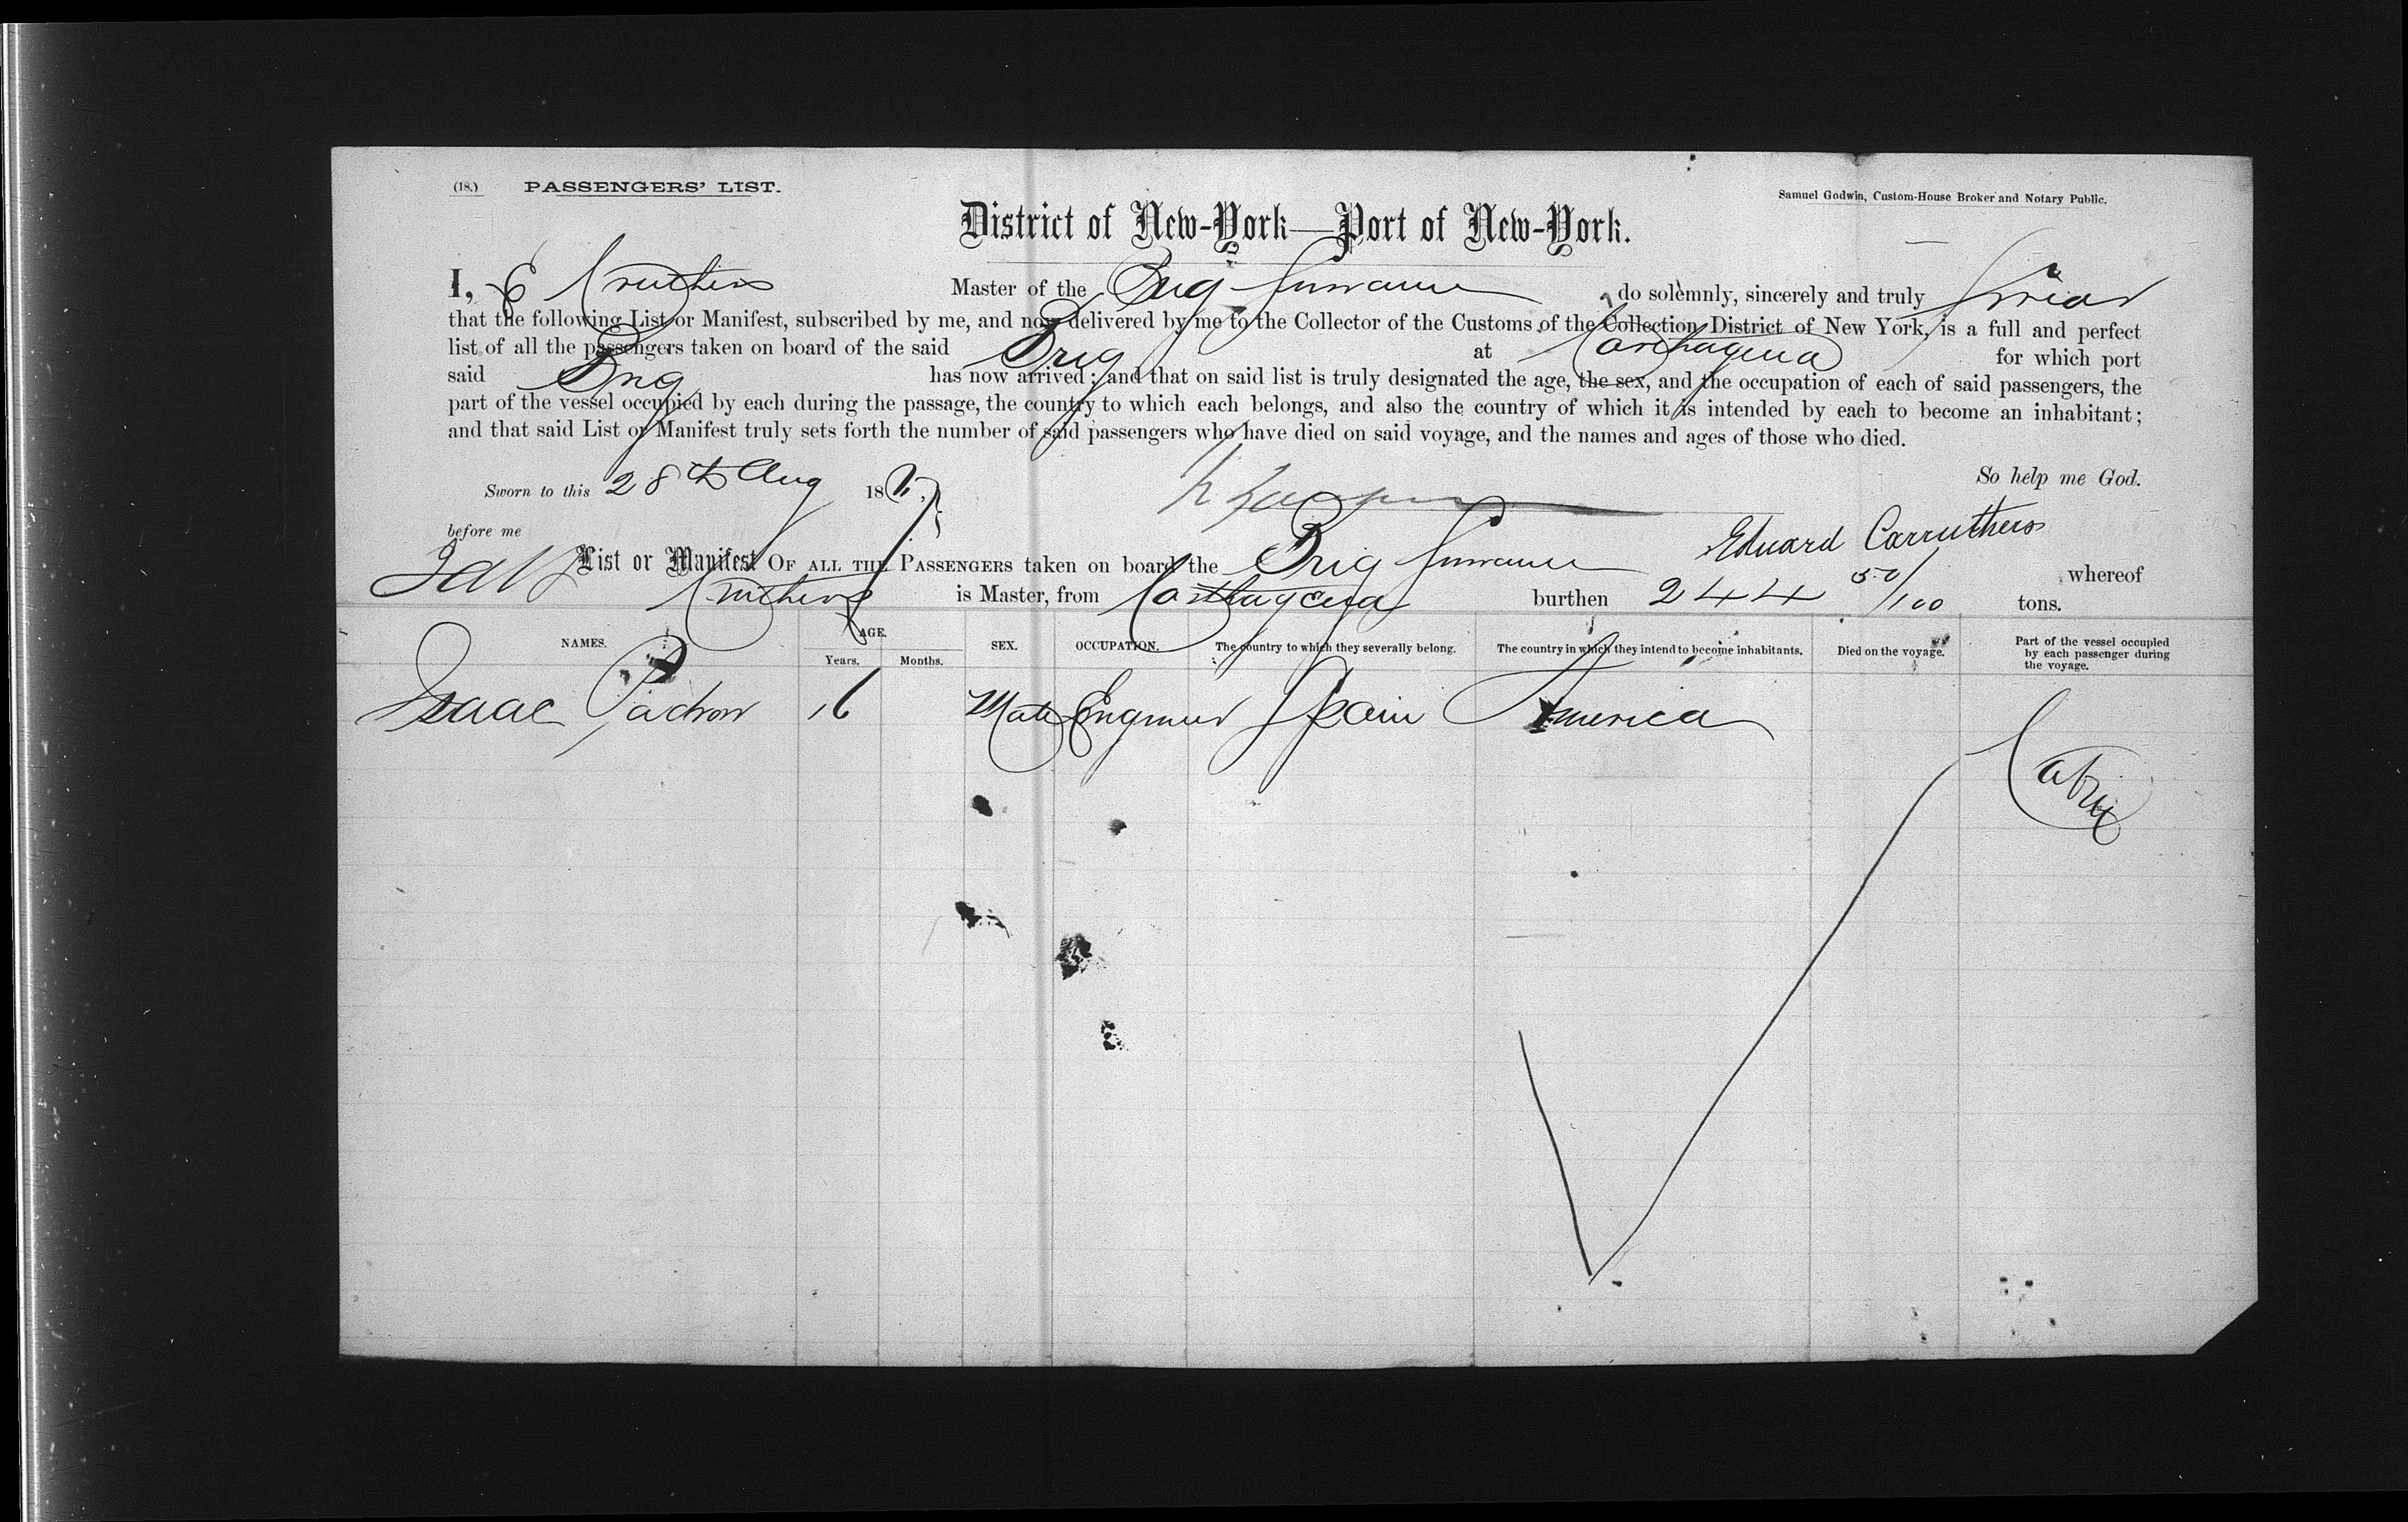 (18.) PASSENGERS' LIST.
Samuel Godwin, Custom-House Broker and Notary Public.
District of New-York—Port of New-York.
I, E Carruthers Master of the Brig do solemnly, sincerely and truly Swear
that the following List or Manifest, subscribed by me, and now delivered by me to the Collector of the Customs of the Collection District of New York, is a full and perfect
list of all the passengers taken on board of the said Brig at Carthagena for which port
said Brig has now arrived; and that on said list is truly designated the age, the sex, and the occupation of each of said passengers, the
part of the vessel occupied by each during the passage, the country to which each belongs, and also the country of which it is intended by each to become an inhabitant;
and that said List or Manifest truly sets forth the number of said passengers who have died on said voyage, and the names and ages of those who died.
So help me God.
Sworn to this 28th Aug 18
before me
Eduard Carruthers
List or Manifest OF ALL THE PASSENGERS taken on board the Brig whereof
Carruthers is Master, from Carthagena burthen 244 50/100 tons.
NAMES. AGE. SEX. OCCUPATION. The country to which they severally belong. The country in which they intend to become inhabitants. Died on the voyage. Part of the vessel occupied by each passenger during the voyage.
Years. Months.
Isaac Padron 16 Male Engineer Spain America
Cabin